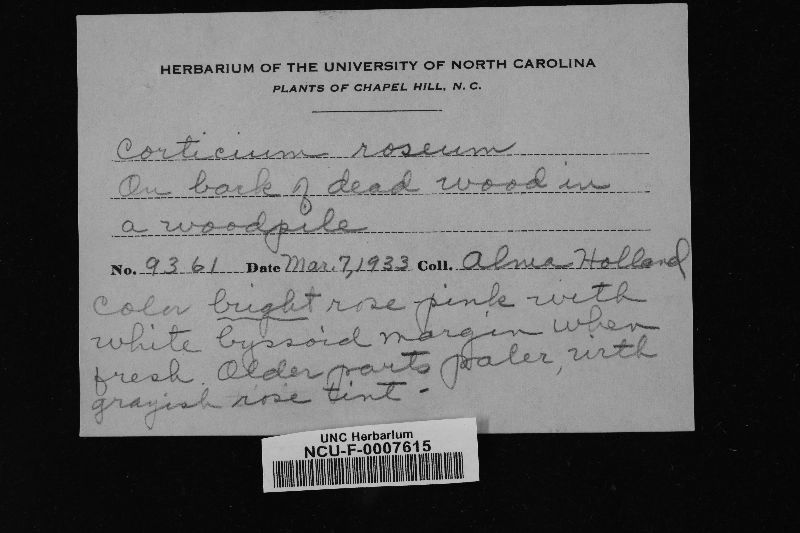 HERBARIUM OF THE UNIVERSITY OF NORTH CAROLINA
PLANTS OF CHAPEL HILL, N. C.
Corticium roseum
On bark of dead wood in
a woodpile
No. 9361 Date Mar. 7, 1933 Coll. Alma Holland
Color bright rose pink with
white byssoid margin when
fresh. Older parts paler, with
grayish rose tint -
UNC Herbarium
NCU-F-0007615